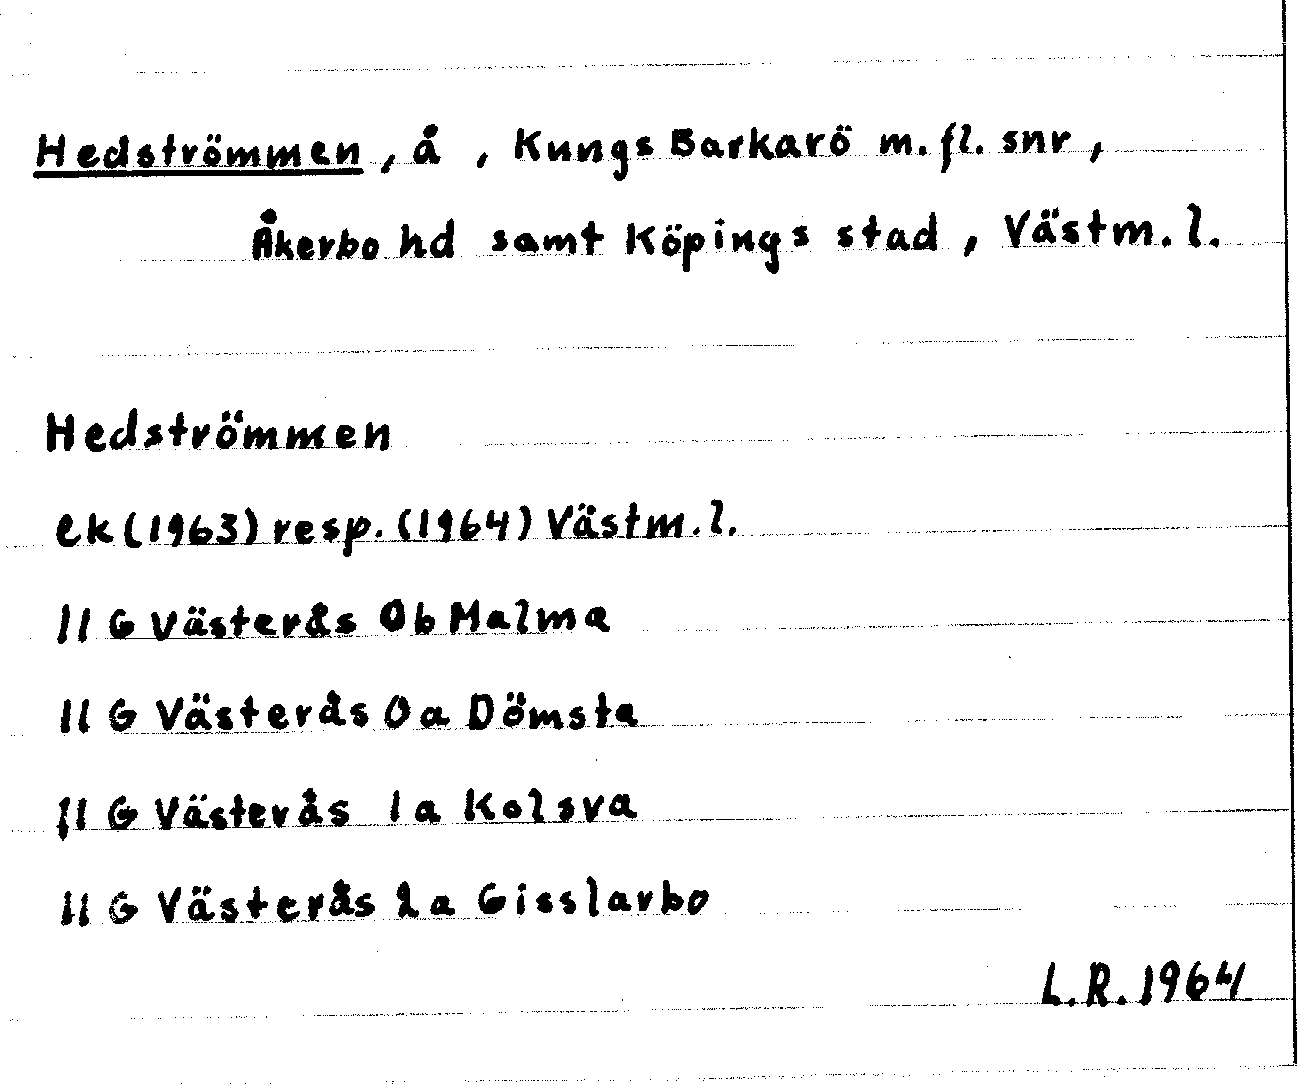 Hedströmmen, å, Kungs Barkarö m. fl. snr,
Åkerbo hd samt Köpings stad, Västm. l.
Hedströmmen
ek (1963) resp. (1964) Västm. l.
11 G Västerås 0b Malma
11 G Västerås 0a Dömsta
11 G Västerås 1a Kolsva
11 G Västerås 2a Gisslarbo
L. R. 1964